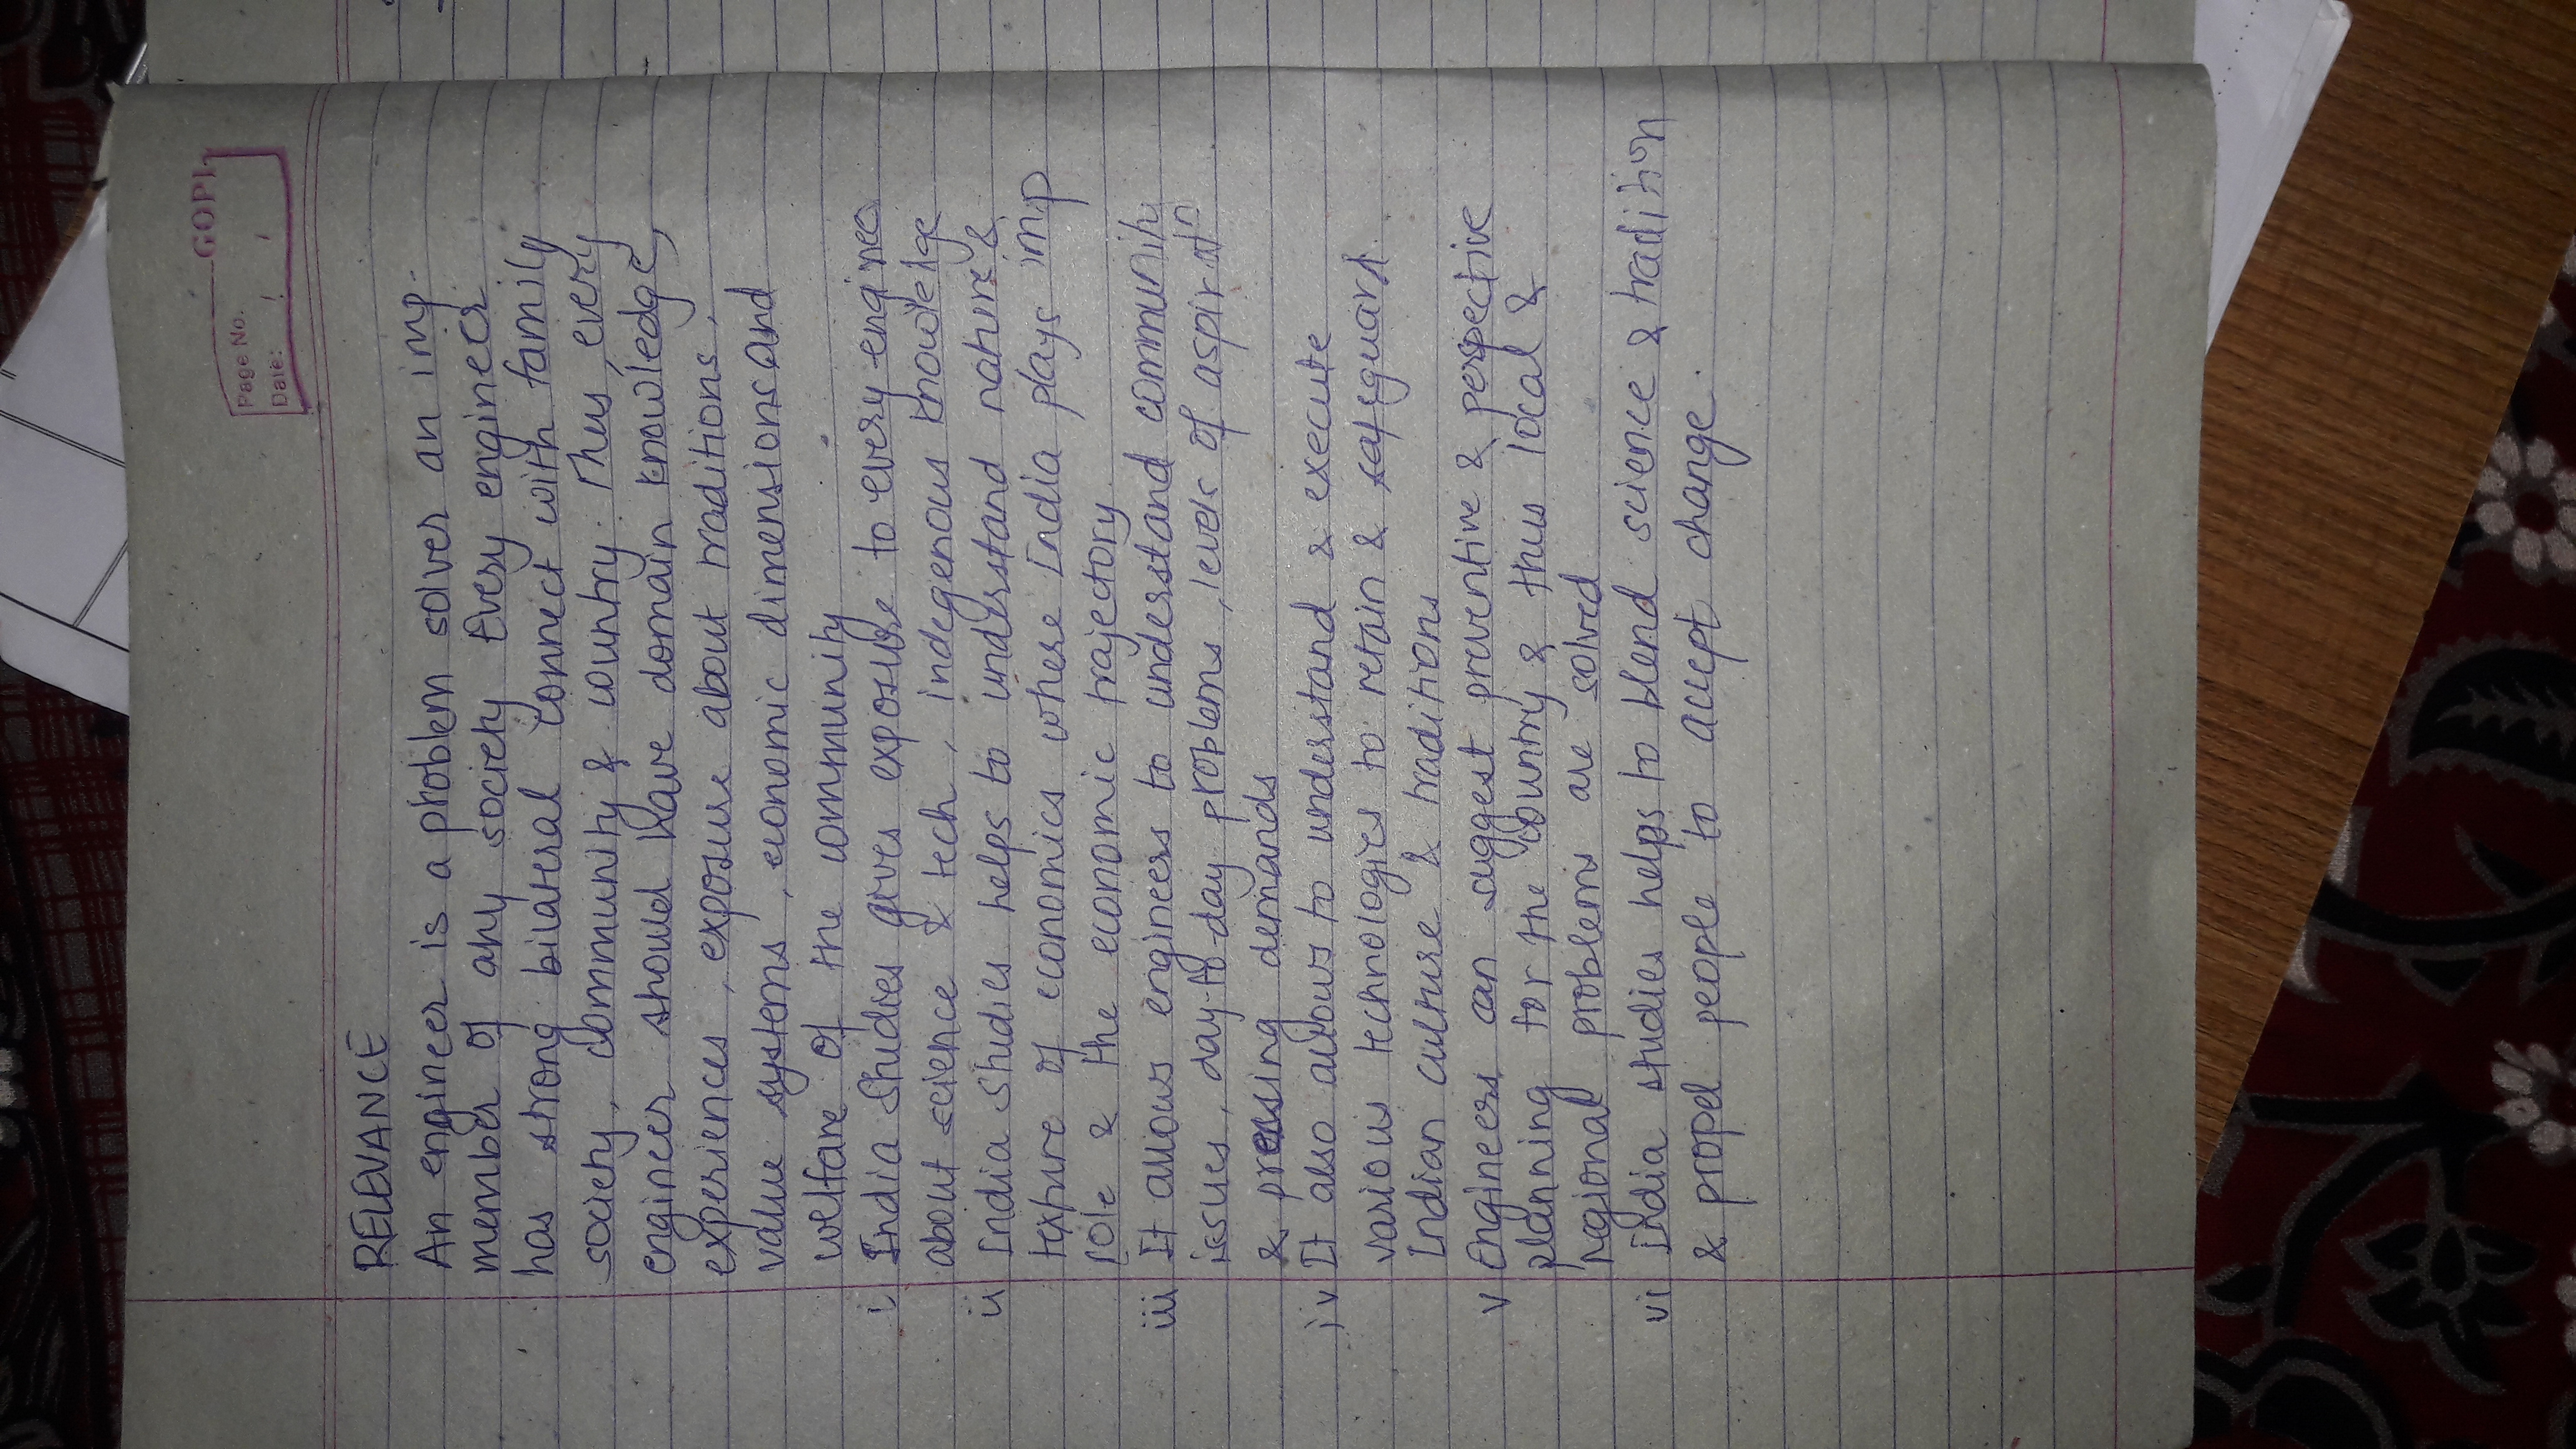 GOPI
Page No.
Date: / /
RELEVANCE
An engineer is a problem solver an imp.
member of any society Every engineer
has strong bilateral connect with family
society, community & country. Thus, every
engineer should have domain knowledge,
experiences, exposure about traditions,
value systems, economic dimensions and
welfare of the community
i India Studies gives exposure to every enginee
about science & tech, indegenous knowledge
ii India Studies helps to understand nature &
texture of economics where India plays imp
role & the economic trajectory
iii It allows engineers to understand community
issues, day-to-day problems, levels of aspiratⁿ
& pressing demands
iv It also allows to understand & execute
various technologies to retain & safeguard
Indian culture & traditions
v Engineers can suggest preventive & perspective
planning for the country & thus local &
regional problems are solved
vi India studies helps to blend science & tradition
& propel people to accept change.